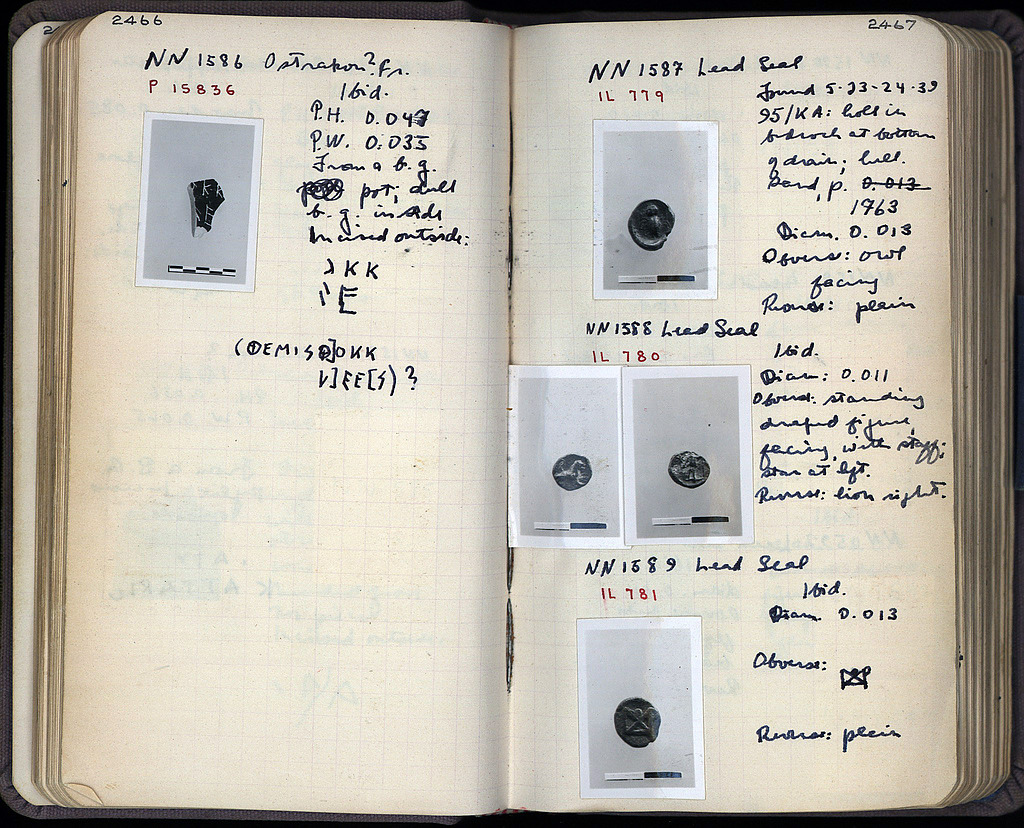 2466
NN 1586 Ostrakon? Fr.
P 15836
Ibid.
P.H. 0.047
P.W. 0.035
From a b.g.
pot; dull
b.g. inside
Incised outside:
KK
E
(ΘEMISΘ]OKK
]EE[S) ?
2467
NN 1587 Lead Seal
IL 779
Found 5-23-24-39
95/KA: hole in
bedrock at bottom
of drain; hell.
Sand, p. 0.013
1963
Diam. 0.013
Obverse: owl
facing
Reverse: plain
NN 1588 Lead Seal
IL 780
Ibid.
Diam: 0.011
Obverse: standing
draped figure,
facing, with staff;
star at lft.
Reverse: lion right.
NN 1589 Lead Seal
IL 781
Ibid.
Diam. 0.013
Obverse:
Reverse: plain